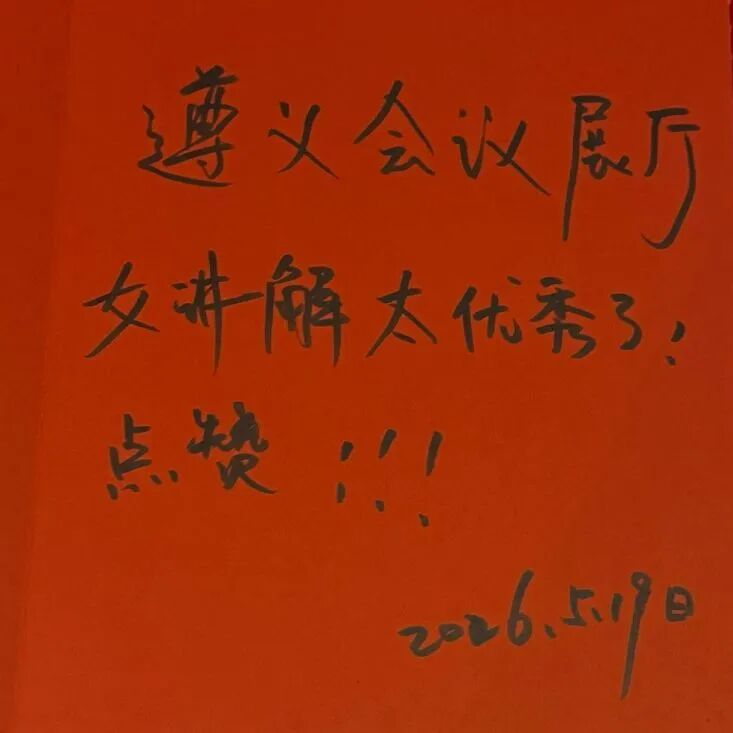 遵义会议展厅
女讲解太优秀了！
点赞！！！
2026.5.19日